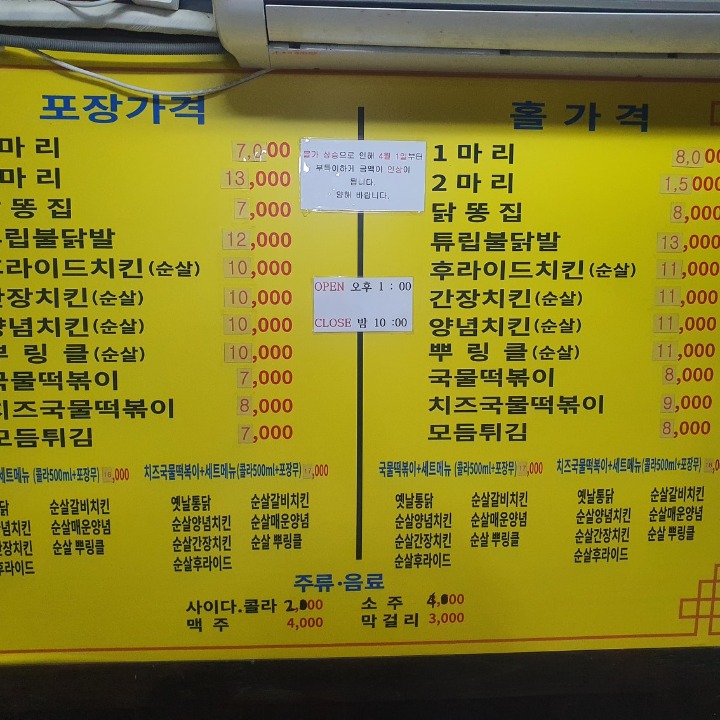 포장가격
마 리 7,000
마 리 13,000
똥 집 7,000
립불닭발 12,000
후라이드치킨(순살) 10,000
간장치킨(순살) 10,000
양념치킨(순살) 10,000
뿌 링 클(순살) 10,000
국물떡볶이 7,000
치즈국물떡볶이 8,000
모듬튀김 7,000
세트메뉴 (콜라500ml+포장무)
치즈국물떡볶이+세트메뉴(콜라500ml+포장무)
닭 순살갈비치킨
념치킨 순살매운양념
간장치킨 순살 뿌링클
후라이드
옛날통닭 순살갈비치킨
순살양념치킨 순살매운양념
순살간장치킨 순살 뿌링클
순살후라이드
물가 상승으로 인해 4월 1일부터
부득이하게 금액이 인상이
됩니다.
양해 바랍니다.
OPEN 오후 1 : 00
CLOSE 밤 10 :00
홀 가 격
1 마 리 8,00
2 마 리 1,500
닭 똥 집 8,000
튜립불닭발 13,000
후라이드치킨(순살) 11,000
간장치킨(순살) 11,000
양념치킨(순살) 11,000
뿌 링 클(순살) 11,000
국물떡볶이 8,000
치즈국물떡볶이 9,000
모듬튀김 8,000
국물떡볶이+세트메뉴 (콜라500ml+포장무)
치즈국물떡볶이+세트메뉴(콜라500ml+포장무)
옛날통닭 순살갈비치킨
순살양념치킨 순살매운양념
순살간장치킨 순살 뿌링클
순살후라이드
옛날통닭 순살갈비치킨
순살양념치킨 순살매운양념
순살간장치킨 순살 뿌링클
순살후라이드
주류·음료
사이다.콜라 2,000 소 주 4,000
맥 주 4,000 막걸리 3,000